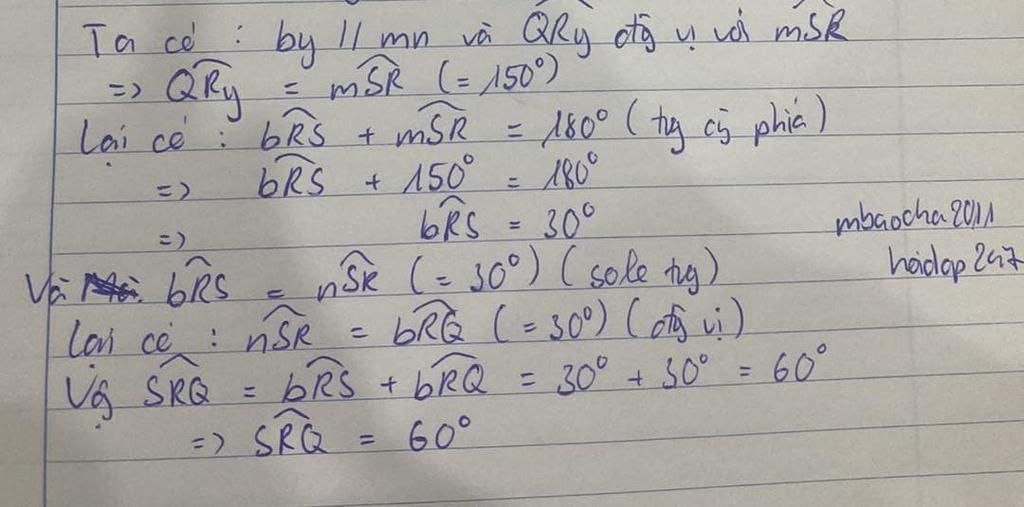 Ta có : by // mn và QRy đồg vị với mSR
=> QRy = mSR (= 150°)
Lại có : bRS + mSR = 180° ( tg cg phía )
=> bRS + 150° = 180°
=> bRS = 30°
mbaocha2011
Và bRS = nSR (= 30°) ( sole tg )
hoidap247
Lại có : nSR = bRQ (= 30°) ( đồg vị )
Vậ SRQ = bRS + bRQ = 30° + 30° = 60°
=> SRQ = 60°